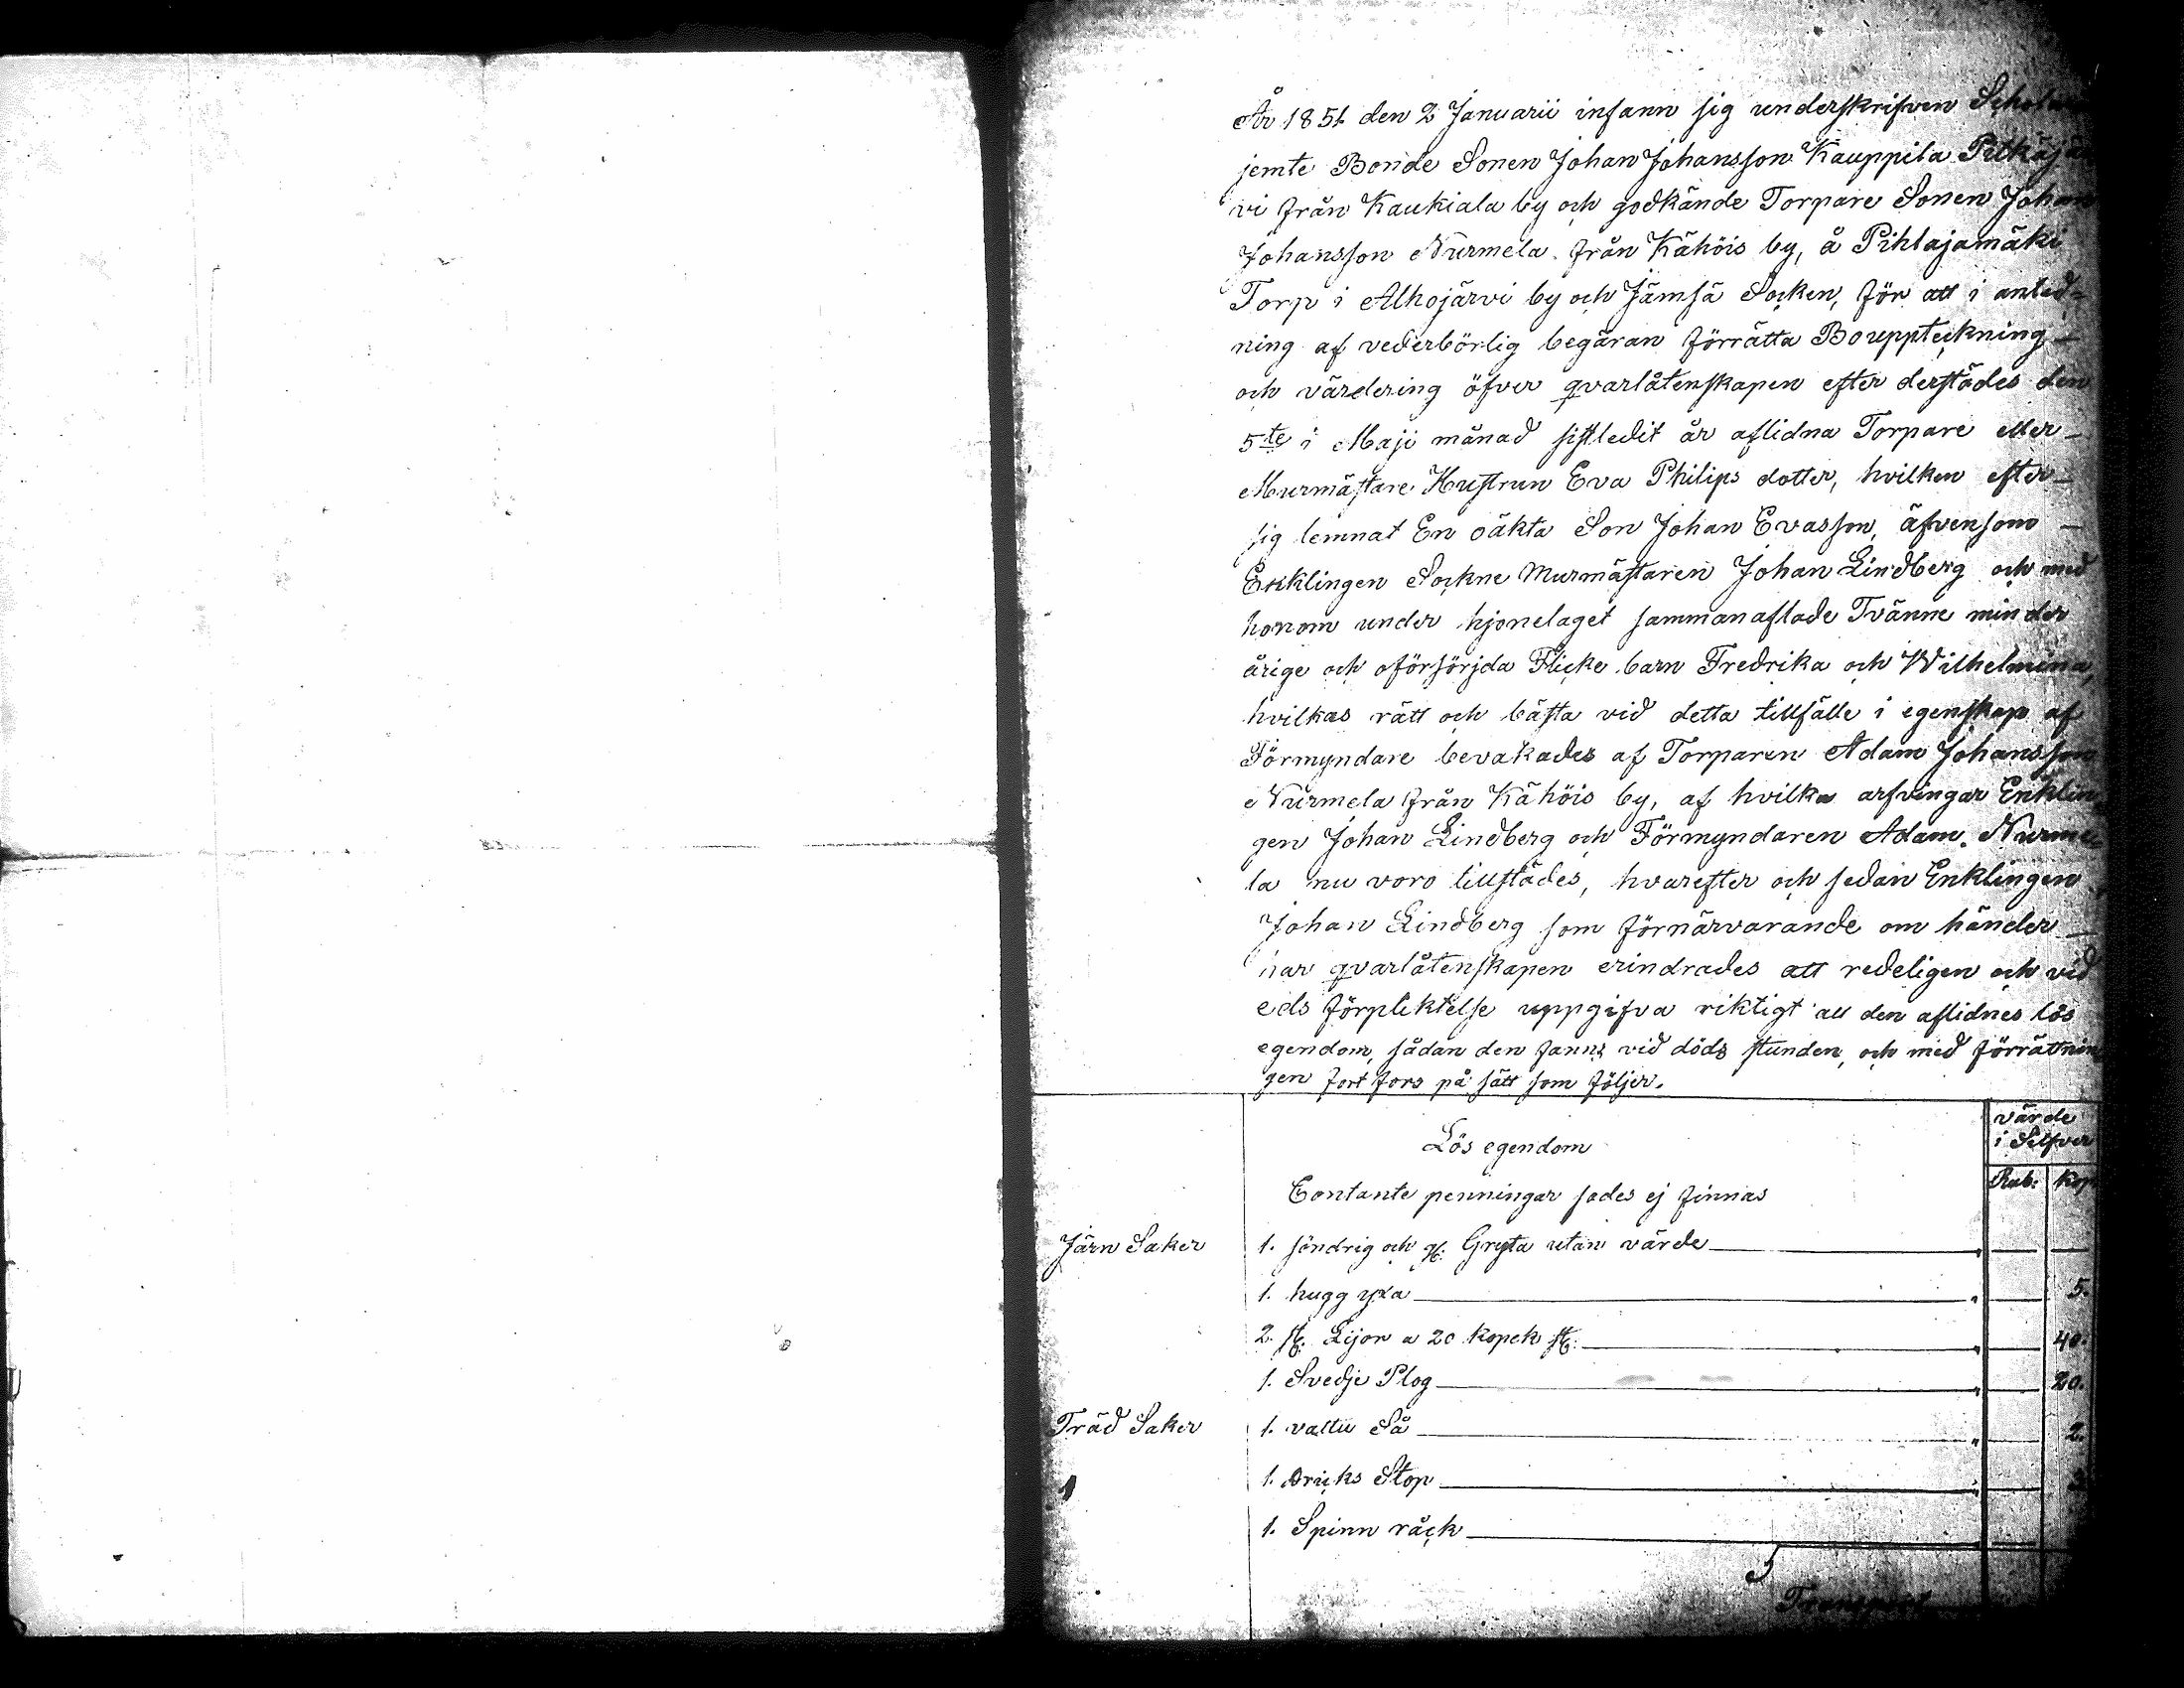 År 1851 den 2 Januarii infann sig underskrifven
jemte Bonde Sonen Johan Johansson Kauppila Pitkäjär
vi från Kaukiala by och godkände Torpare Sonen Johan
Johansson Nurmela från Kähöis by, å Pihlajamäki
Torp i Alhojärvi by och Jämsä Socken, för att i anled-
ning af vederbörlig begäran förrätta Bouppteckning
och värdering öfver qvarlåtenskapen efter derstädes den
5te i Maji månad sistledit år aflidna Torpare eller
Murmästare Hustrun Eva Philips dotter, hvilken efter
sig lemnat En oäkta Son Johan Evasson, äfvensom
Enklingen Sockne Murmästaren Johan Lindberg och med
honom under hjonelaget sammanaflade Tvänne minder
årige och oförsörjda Flicke barn Fredrika och Wilhelmina,
hvilkas rätt och bästa vid detta tillfälle i egenskap af
Förmyndare bevakades af Torparen Adam Johansson
Nurmela från Kähöis by, af hvilka arfvingar Enklin
gen Johan Lindberg och Förmyndaren Adam Nurme
la nu voro tillstädes, hvarefter och sedan Enklingen
Johan Lindberg som förnärvarande om händer
har qvarlåtenskapen erindrades att redeligen och vid
eds förpliktelse uppgifva riktigt all den aflidnes lös
egendom, sådan den fanns vid döds stunden, och med förrättnin
gen fort fors på sätt som följer.
värde
i Silfver
Lös egendom
Rub: Kop
Contante penningar sades ej finnas
Järn Saker 1. söndrig och gl. Gryta utan värde
1. hugg yxa 5.
2. st. Lijor a 20 kopek st: 40.
1. Svedje Plog 20.
Träd Saker 1. vattu Så 2.
1. Dricks Stop
1. Spinn råck
Transport